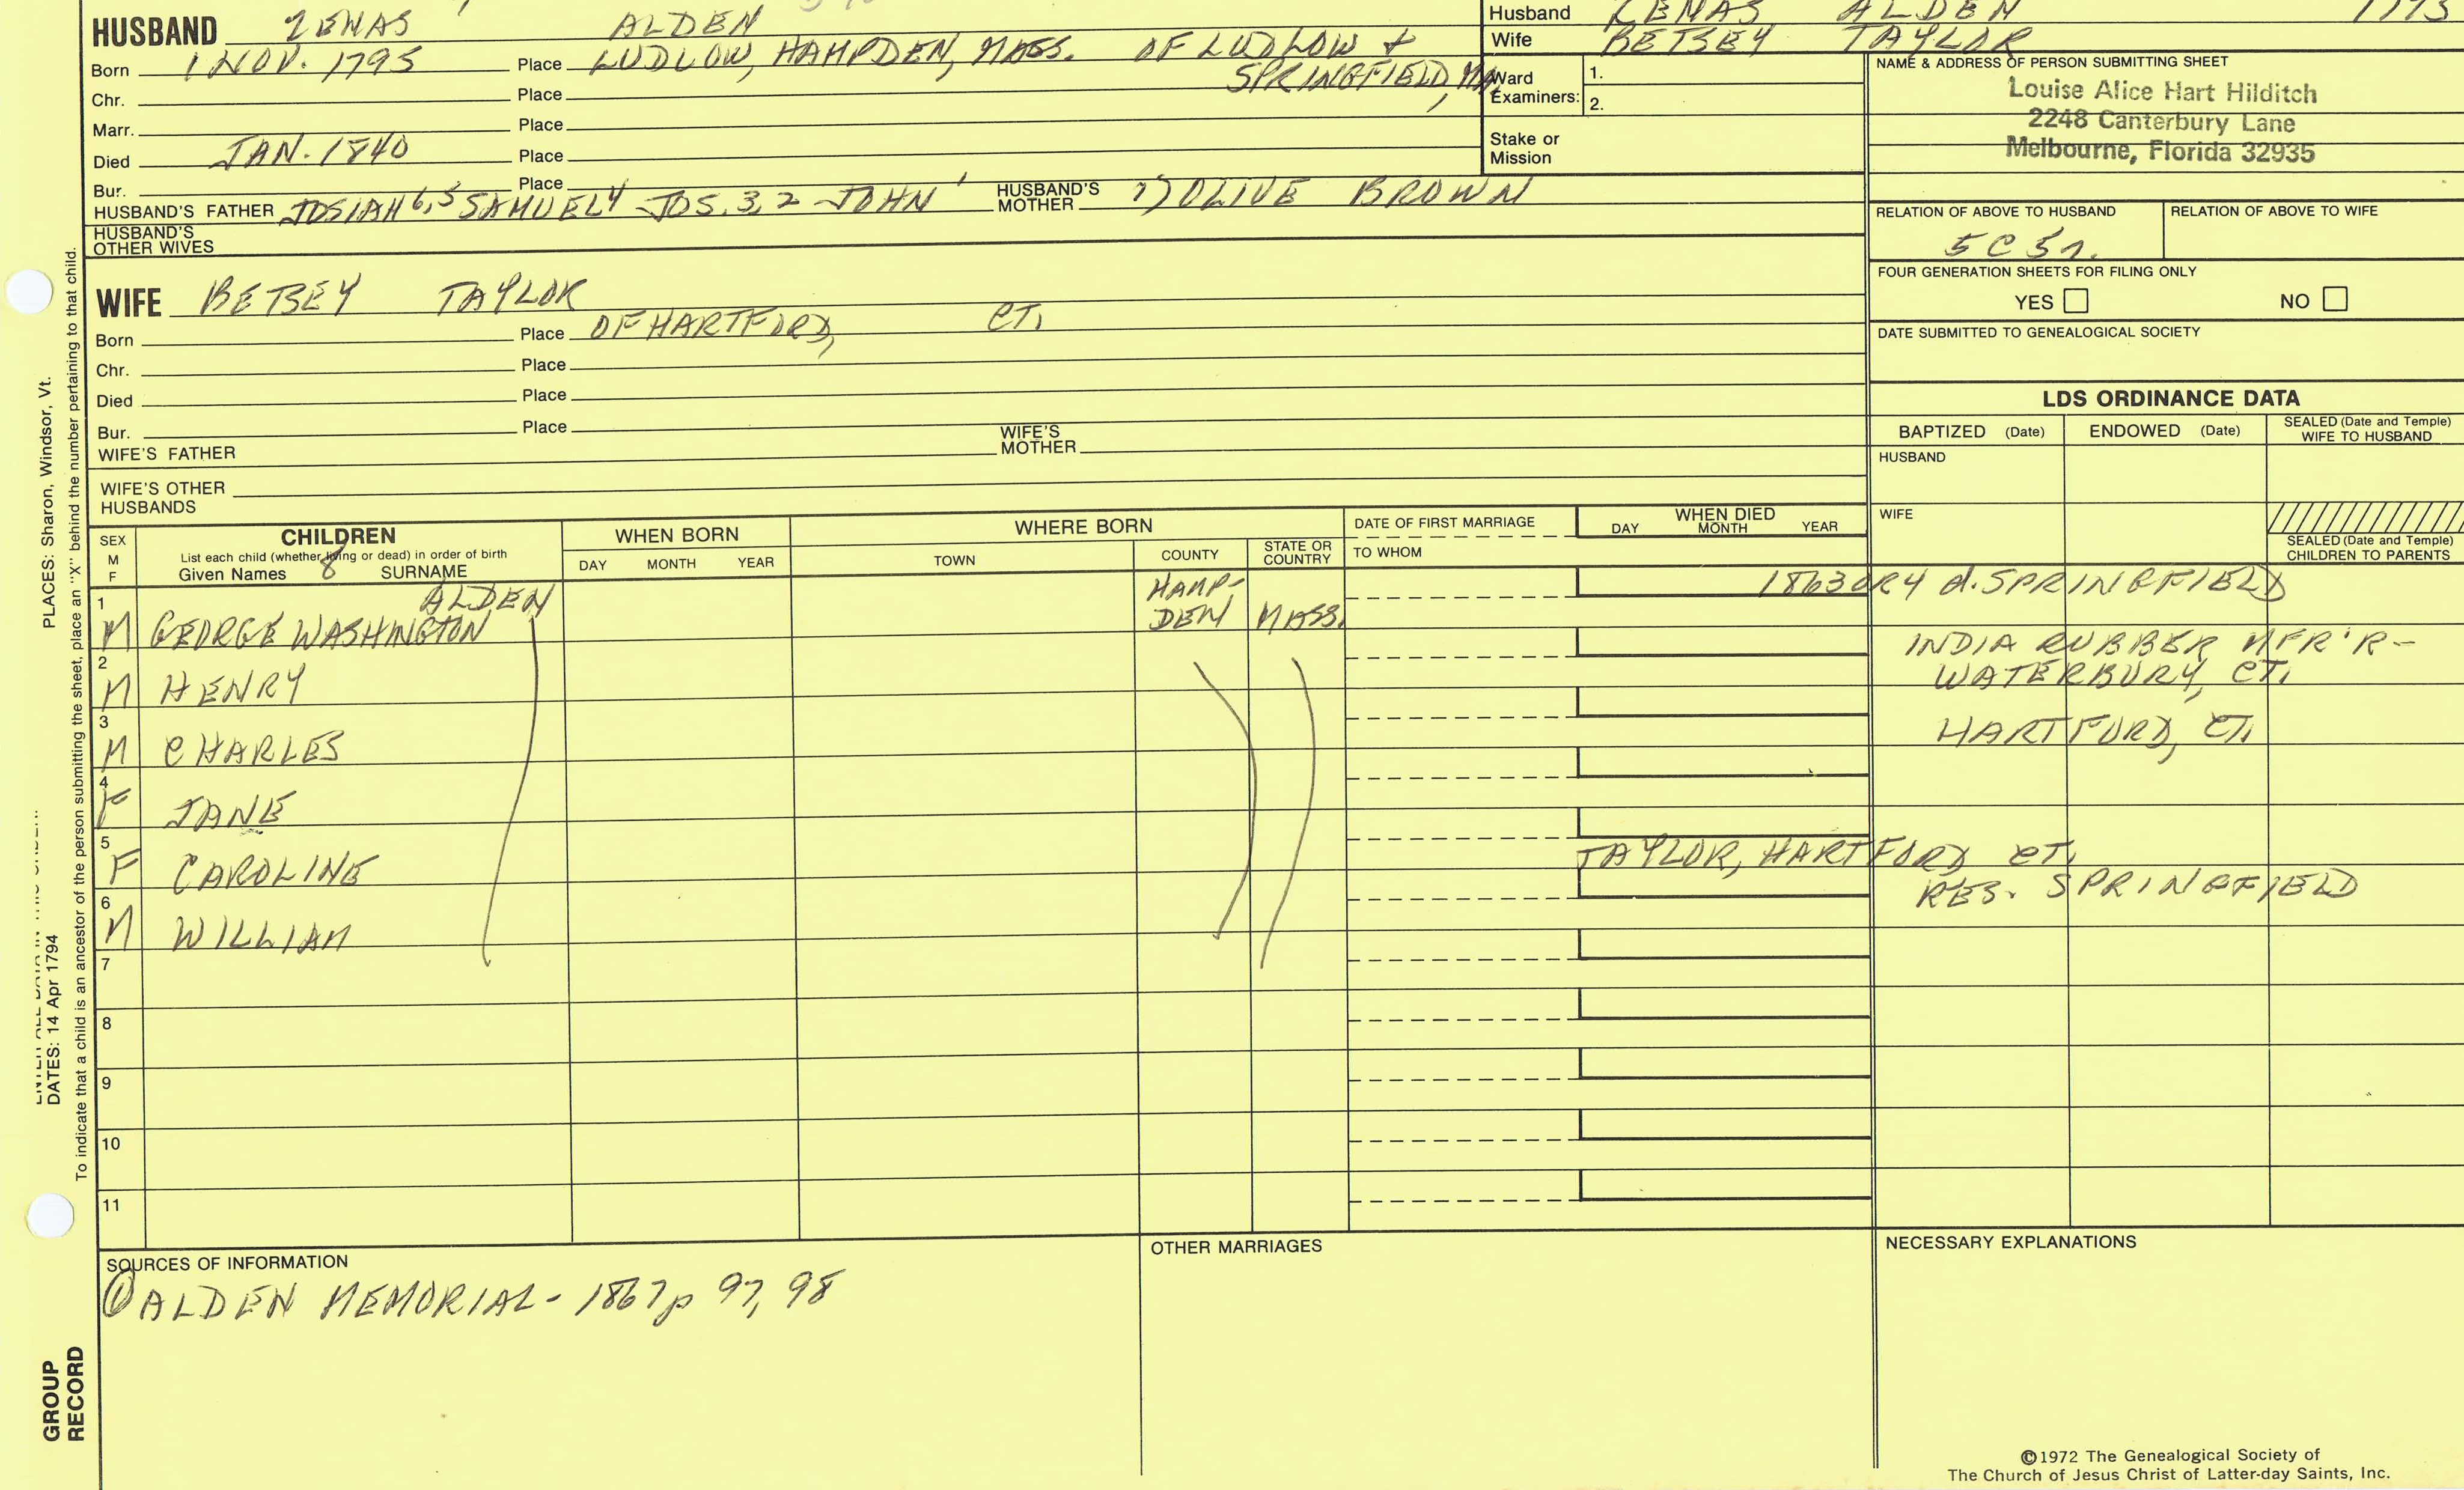 HUSBAND ZENAS ALDEN
Born 1 NOV. 1795 Place LUDLOW, HAMPDEN, MASS. OF LUDLOW &
SPRINGFIELD, MA.
Chr. Place
Marr. Place
Died JAN. 1840 Place
Bur. Place
HUSBAND'S FATHER JOSIAH 6,5 SAMUEL 4 JOS. 3,2 JOHN 1 HUSBAND'S MOTHER 1) OLIVE BROWN
HUSBAND'S
OTHER WIVES
Husband ZENAS ALDEN 1795
Wife BETSEY TAYLOR
Ward
Examiners: 1.
2.
Stake or
Mission
NAME & ADDRESS OF PERSON SUBMITTING SHEET
Louise Alice Hart Hilditch
2248 Canterbury Lane
Melbourne, Florida 32935
RELATION OF ABOVE TO HUSBAND RELATION OF ABOVE TO WIFE
5 C 5 r.
FOUR GENERATION SHEETS FOR FILING ONLY
YES NO
DATE SUBMITTED TO GENEALOGICAL SOCIETY
WIFE BETSEY TAYLOR
Born Place OF HARTFORD, CT.
Chr. Place
Died Place
Bur. Place
WIFE'S FATHER WIFE'S MOTHER
WIFE'S OTHER
HUSBANDS
LDS ORDINANCE DATA
BAPTIZED (Date) ENDOWED (Date) SEALED (Date and Temple)
WIFE TO HUSBAND
HUSBAND
WIFE
SEALED (Date and Temple)
CHILDREN TO PARENTS
SEX
M
F
CHILDREN
List each child (whether living or dead) in order of birth
Given Names 8 SURNAME
WHEN BORN
DAY MONTH YEAR
WHERE BORN
TOWN COUNTY STATE OR
COUNTRY
DATE OF FIRST MARRIAGE
TO WHOM
WHEN DIED
DAY MONTH YEAR
1 ALDEN HAMP- 1863 OR 4 d. SPRINGFIELD
M GEORGE WASHINGTON DEN MASS.
2 INDIA RUBBER MFR'R-
M HENRY WATERBURY, CT.
3
M CHARLES HARTFORD, CT.
4
F JANE
5 TAYLOR, HARTFORD CT.
F CAROLINE RES. SPRINGFIELD
6
M WILLIAM
7
8
9
10
11
SOURCES OF INFORMATION
① ALDEN MEMORIAL - 1867 p 97, 98
OTHER MARRIAGES
NECESSARY EXPLANATIONS
©1972 The Genealogical Society of
The Church of Jesus Christ of Latter-day Saints, Inc.
PLACES: Sharon, Windsor, Vt.
DATES: 14 Apr 1794
To indicate that a child is an ancestor of the person submitting the sheet, place an "X" behind the number pertaining to that child.
GROUP
RECORD